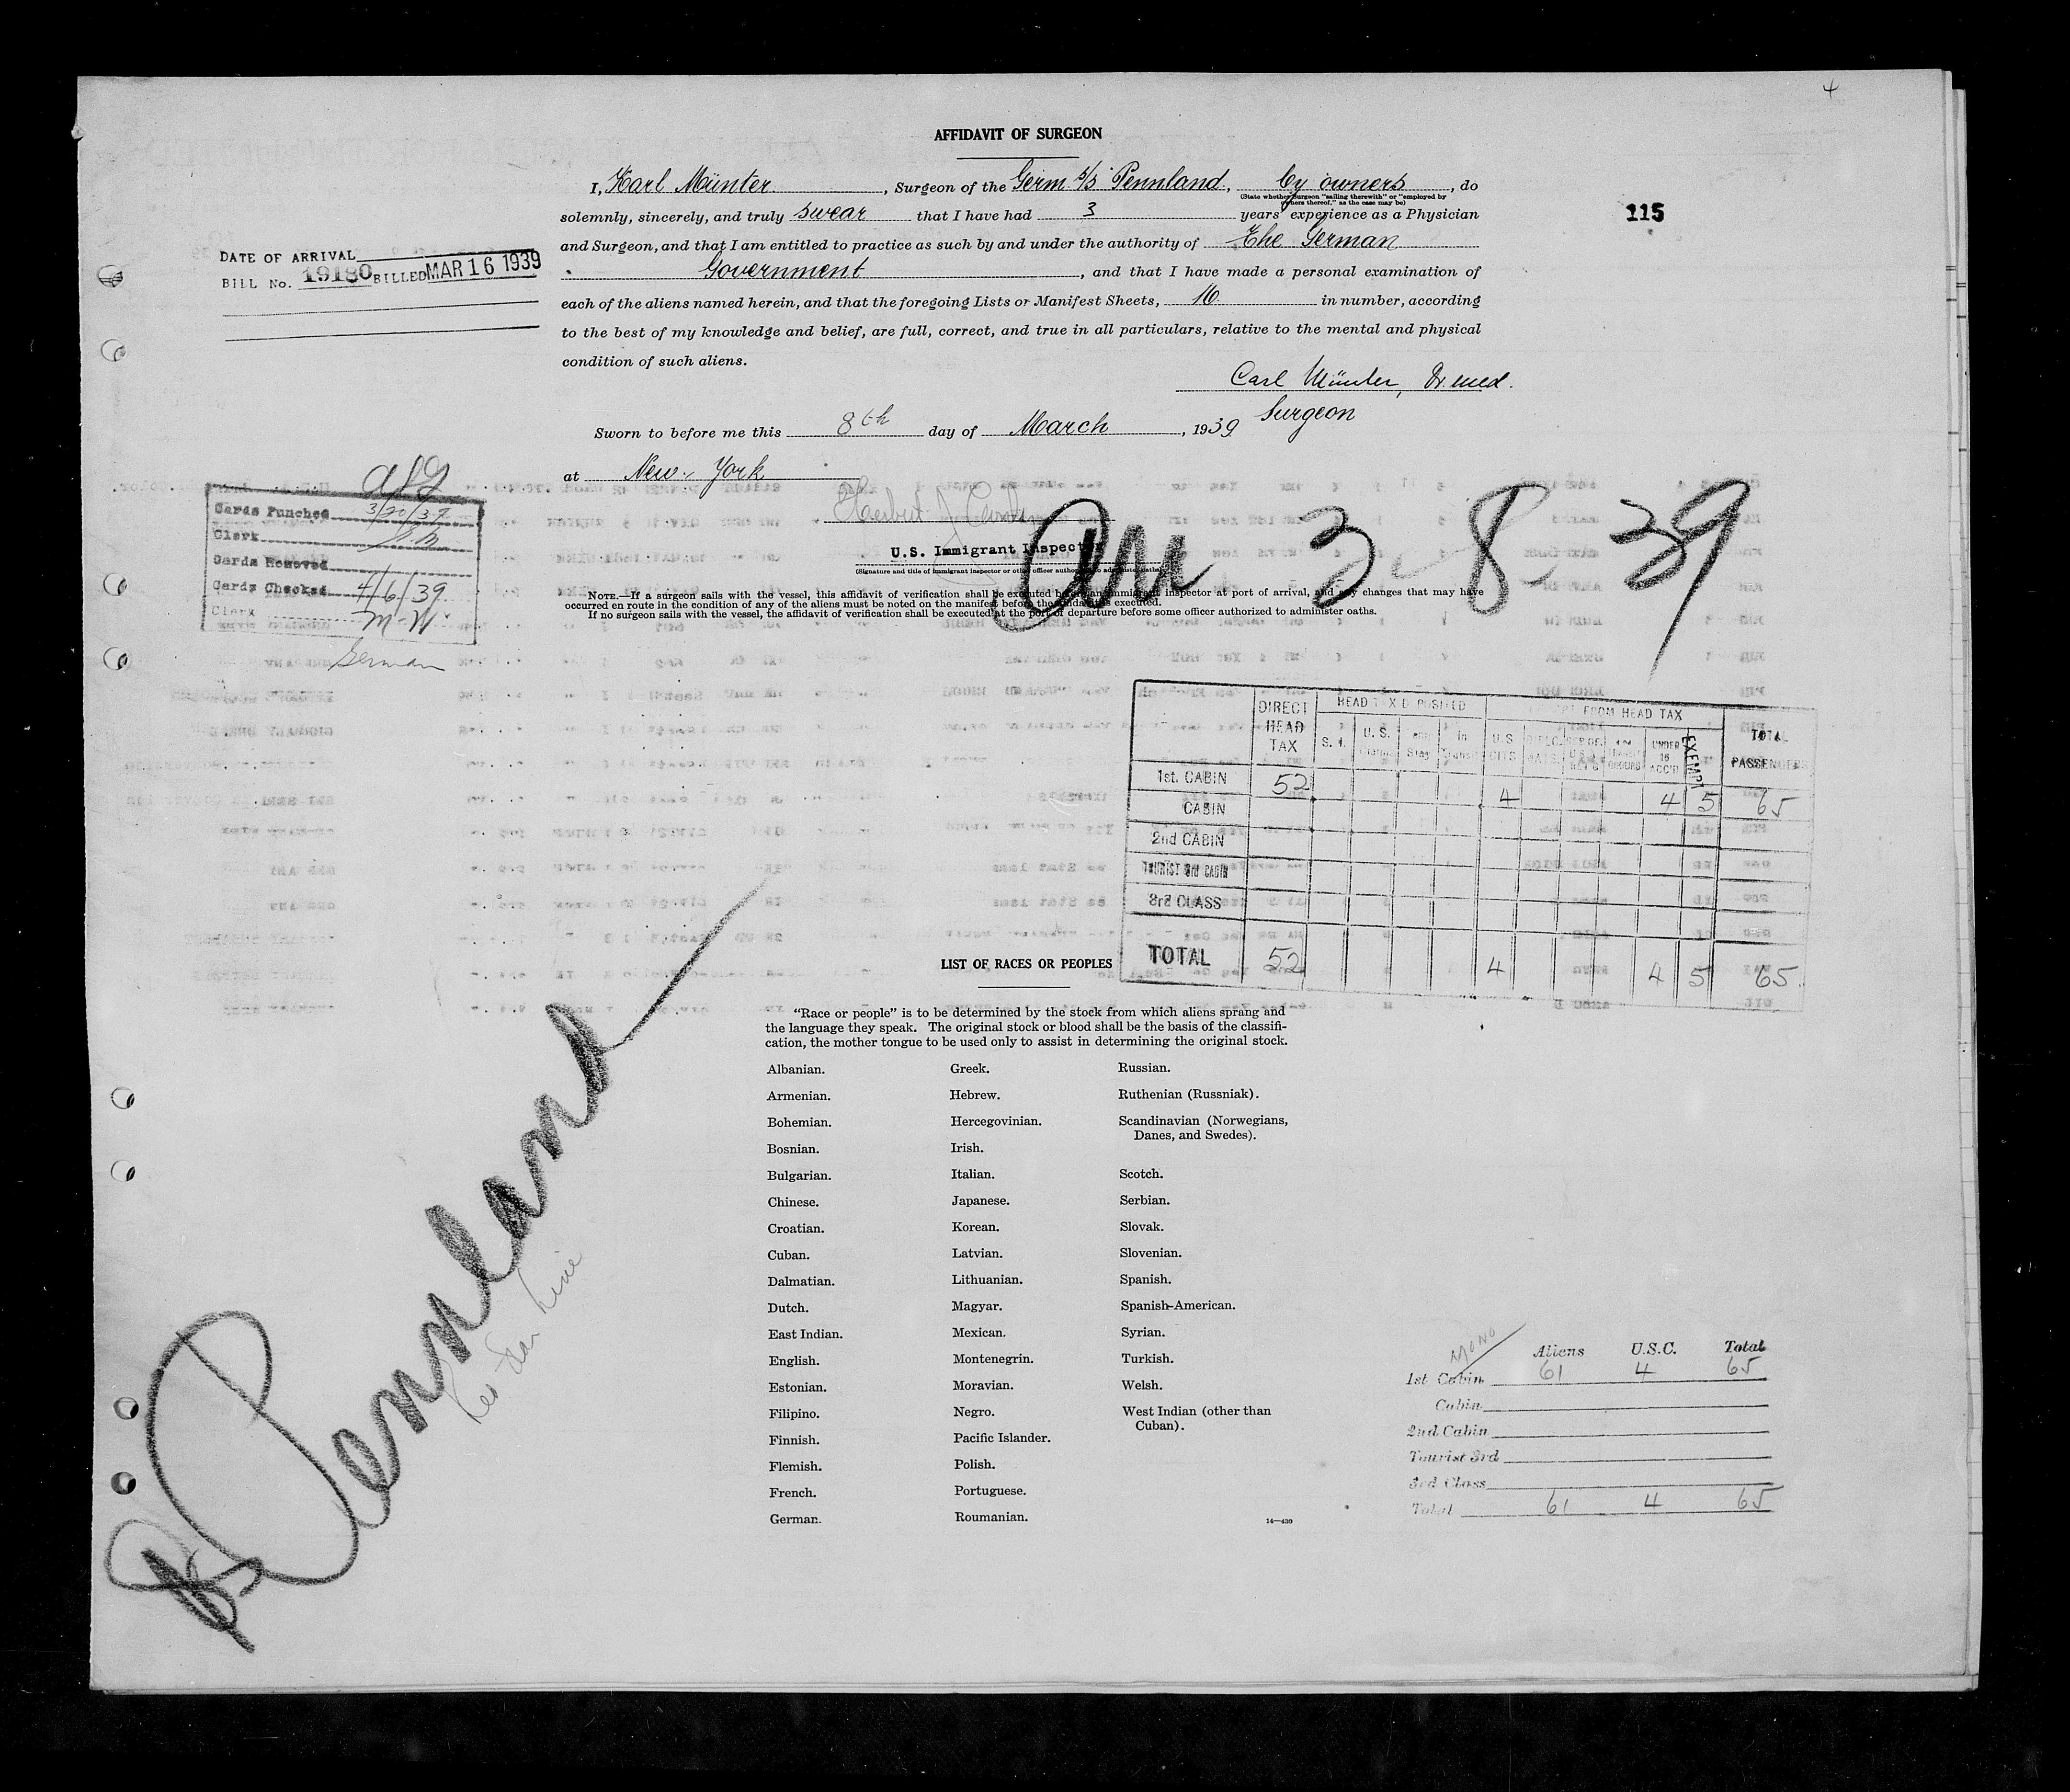 4
AFFIDAVIT OF SURGEON
I, Karl Münter, Surgeon of the Germ. s/s Pennland, by owners, do
(State whether Surgeon "sailing therewith" or "employed by
owners thereof," as the case may be)
solemnly, sincerely, and truly swear that I have had 3 years' experience as a Physician
115
and Surgeon, and that I am entitled to practice as such by and under the authority of The German
Government, and that I have made a personal examination of
each of the aliens named herein, and that the foregoing Lists or Manifest Sheets, 16 in number, according
to the best of my knowledge and belief, are full, correct, and true in all particulars, relative to the mental and physical
condition of such aliens.
DATE OF ARRIVAL
BILL No. 19180 BILLED MAR 16 1939
Carl Münter, Dr. med.
Surgeon
Sworn to before me this 8th day of March, 1939
at New York
Herbert J
U.S. Immigrant Inspector
(Signature and title of immigrant inspector or other officer authorized to administer oaths)
Arr 3-8-39
NOTE.—If a surgeon sails with the vessel, this affidavit of verification shall be executed before an immigrant inspector at port of arrival, and any changes that may have
occurred en route in the condition of any of the aliens must be noted on the manifest before the affidavit is executed.
If no surgeon sails with the vessel, the affidavit of verification shall be executed at the port of departure before some officer authorized to administer oaths.
Cards Punched 3/20/39
Clerk
Cards Removed
Cards Checked 4/6/39
Clerk M-W
German
DIRECT HEAD TAX
HEAD TAX DEPOSITED
FROM HEAD TAX
TOTAL PASSENGERS
S. I. U. S. Stay In Transit U.S. CITS UNDER 16 ACC'D EXEMPT
1st. CABIN 52 4 4 5 65
CABIN
2nd CABIN
TOURIST 3rd CABIN
3rd CLASS
TOTAL 52 4 4 5 65
LIST OF RACES OR PEOPLES
"Race or people" is to be determined by the stock from which aliens sprang and
the language they speak. The original stock or blood shall be the basis of the classifi-
cation, the mother tongue to be used only to assist in determining the original stock.
Albanian.
Armenian.
Bohemian.
Bosnian.
Bulgarian.
Chinese.
Croatian.
Cuban.
Dalmatian.
Dutch.
East Indian.
English.
Estonian.
Filipino.
Finnish.
Flemish.
French.
German.
Greek.
Hebrew.
Hercegovinian.
Irish.
Italian.
Japanese.
Korean.
Latvian.
Lithuanian.
Magyar.
Mexican.
Montenegrin.
Moravian.
Negro.
Pacific Islander.
Polish.
Portuguese.
Roumanian.
Russian.
Ruthenian (Russniak).
Scandinavian (Norwegians,
Danes, and Swedes).
Scotch.
Serbian.
Slovak.
Slovenian.
Spanish.
Spanish-American.
Syrian.
Turkish.
Welsh.
West Indian (other than
Cuban).
14—430
Pennland
Line
MONO
Aliens U.S.C. Total
1st Cabin 61 4 65
Cabin
2nd Cabin
Tourist 3rd
3rd Class
Total 61 4 65